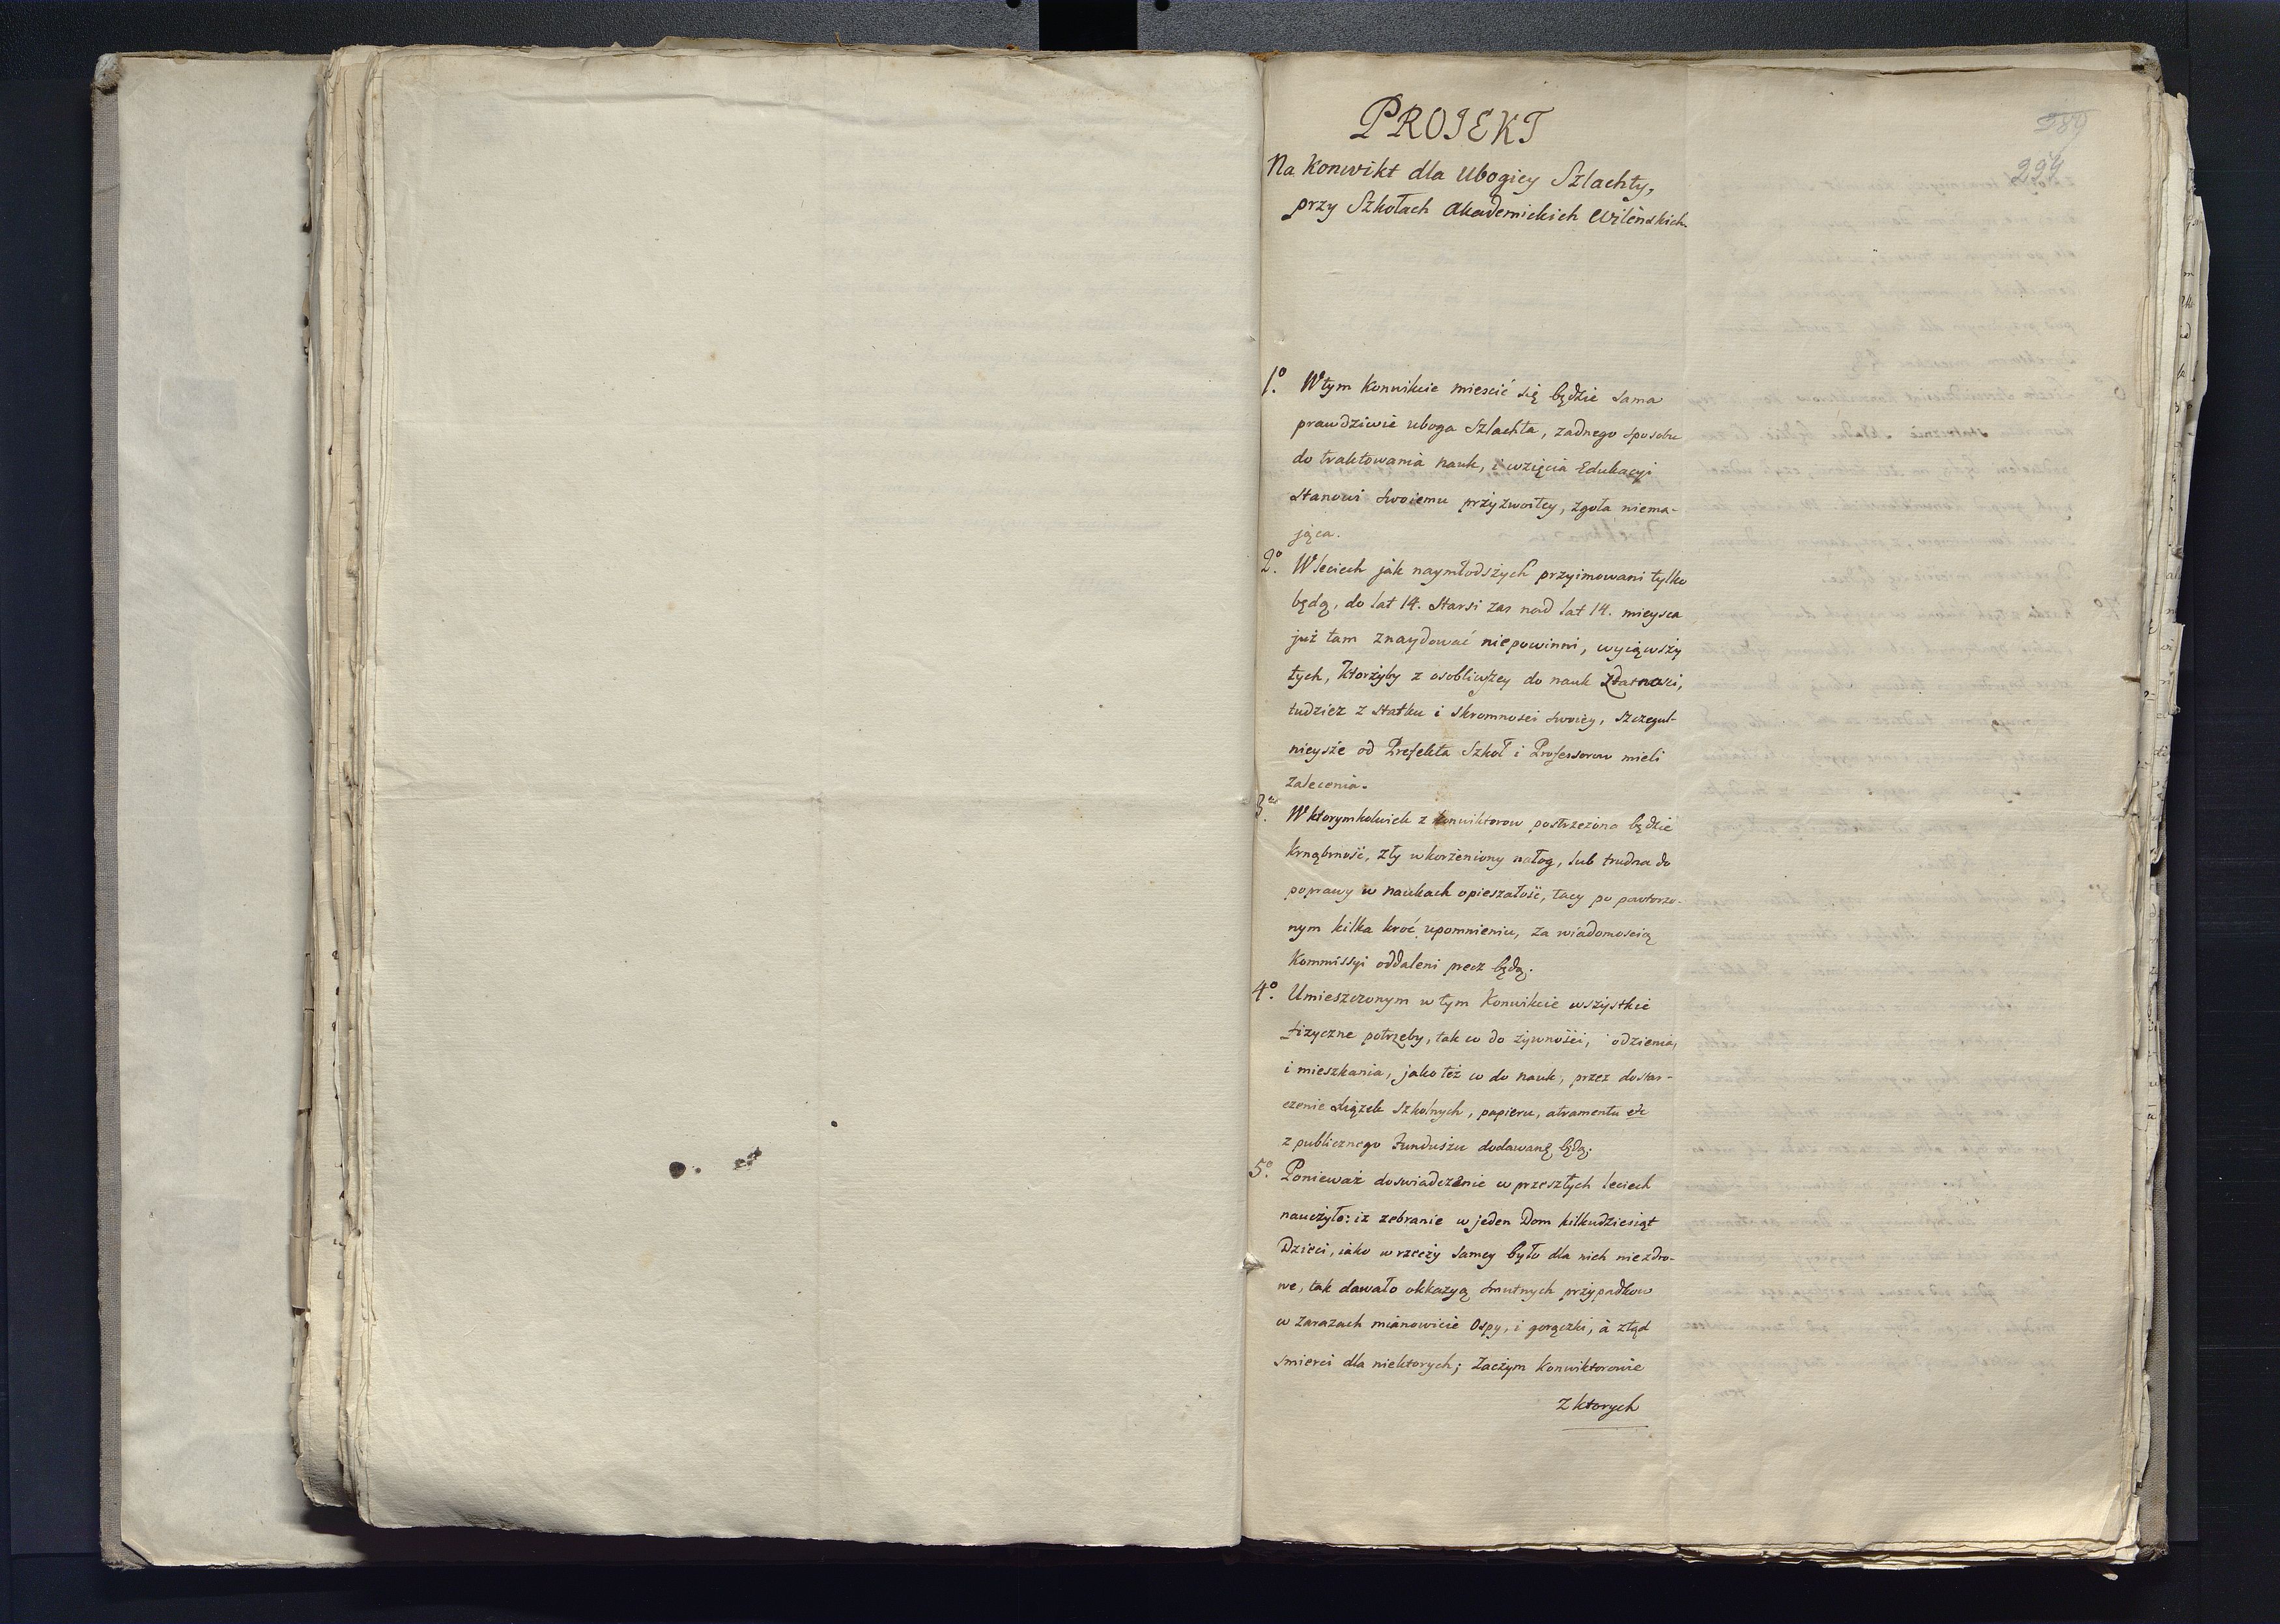 PROJEKT
Na Konwikt dla Ubogiey Szlachty,
przy Szkołach Akademickich Wileńskich.
294
1.o W tym Konwikcie miescić się będzie sama
prawdziwie uboga Szlachta, żadnego sposobu
do traktowania nauk, i wzięcia Edukacyi
stanowi swoiemu przyzwoitey, zgoła niema-
jąca.
2.o W leciech jak naymłodszych przyimowani tylko
będą, do lat 14. Starsi zas nad lat 14. mieysca
już tam znaydować niepowinni, wyiąwszy
tych, ktorzyby z osobliwszey do nauk zdatnosci,
tudziez z statku i skromnosci swoiey, szczegul-
nieysze od Prefekta Szkoł i Professorow mieli
zalecenia.
3. W ktorymkolwiek z konwiktorow postrzeżona będzie
krnąbrność, zły wkorzeniony nałog, lub trudna do
poprawy w naukach opieszałość, tacy po powtorzo-
nym kilka kroć upomnieniu, za wiadomoscią
Kommissyi oddaleni precz będą.
4.o Umieszczonym w tym Konwikcie wszystkie
fizyczne potrzeby, tak co do żywności, i odzienia,
i mieszkania, jako też co do nauk, przez dostar-
czenie Xiążek szkolnych, papieru, atramentu etc
z publicznego Funduszu dodawane będą.
5.o Ponieważ doswiadczenie w przeszłych leciech
nauczyło: iz zebranie w jeden Dom kilkudziesiąt
Dzieci, iako w rzeczy samey było dla nich niezdro-
we, tak dawało okkazyą smutnych przypadkow
w zarazach mianowicie Ospy, i gorączki, à ztąd
smierci dla niektorych; Zaczym Konwiktorowie
z ktorych